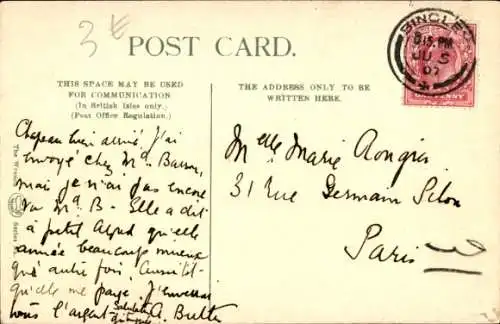 3 €
POST CARD.
BINGLEY
8.15.PM
JU 5
07
THIS SPACE MAY BE USED
FOR COMMUNICATION
(In British Isles only.)
(Post Office Regulation.)
THE ADDRESS ONLY TO BE
WRITTEN HERE.
Chapeau bien arrivé. J'ai
envoyé chez Md. Barron,
mais je n'ai pas encore
vu Md. B - Elle a dit
à petit Alfred qu'elle
année beaucoup mieux
que autre fois. Aussitôt
qu'elle me paye J'enverrai
vous l'argent. Salutations
A. Butler
Melle Marie
31 Rue Germain Pilon
Paris
The Wrench Series